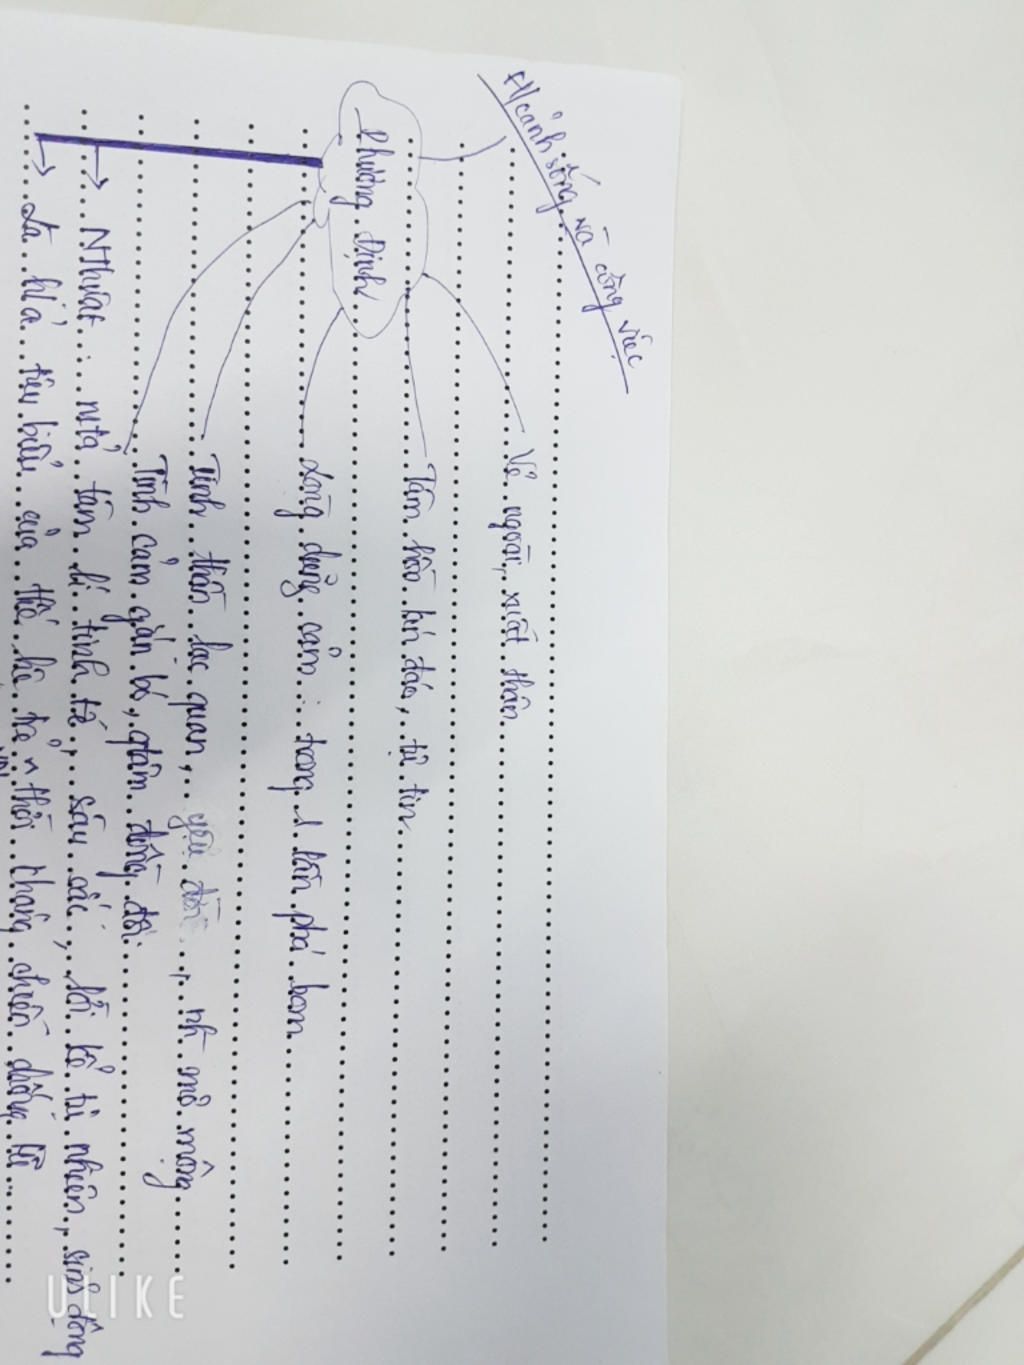 H/cảnh sống và công việc
Phương Định
Vẻ ngoài, xuất thân
Tâm hồn kín đáo, tự tin
Lòng dũng cảm: trong 1 lần phá bom
Tinh thần lạc quan, yêu đời, nh mơ mộng
Tình cảm gắn bó, qtâm đồng đội
→ NThuật: mtả tâm lí tinh tế, sâu sắc, lối kể tự nhiên, sinh động
→ Là h/ả tiêu biểu của thế hệ trẻ thời kháng chiến chống
ULIKE